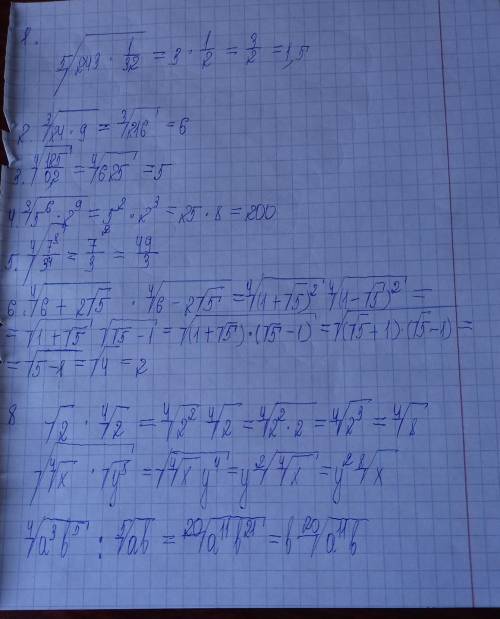 1.
⁵√(243 · 1/32) = 3 · 1/2 = 3/2 = 1,5
2. ³√(24 · 9) = ³√216 = 6
3. ⁴√(125/0,2) = ⁴√625 = 5
4. ³√(5⁶ · 2⁹) = 5² · 2³ = 25 · 8 = 200
5. ⁴√(7⁸/3⁴) = 7²/3 = 49/3
6. ⁴√(6 + 2√5) · ⁴√(6 − 2√5) = ⁴√(1 + √5)² ⁴√(1 − √5)² =
= √(1 + √5) √(√5 − 1) = √((1 + √5) · (√5 − 1)) = √((√5 + 1) · (√5 − 1)) =
= √(5 − 1) = √4 = 2
8
√2 · ⁴√2 = ⁴√2² ⁴√2 = ⁴√(2² · 2) = ⁴√2³ = ⁴√8
√(⁴√x · √y⁸) = √(⁴√x y⁴) = y² √(⁴√x) = y² ⁸√x
⁴√(a³b⁵) : ⁵√(ab) = ²⁰√(a¹¹b²¹) = b ²⁰√(a¹¹b)